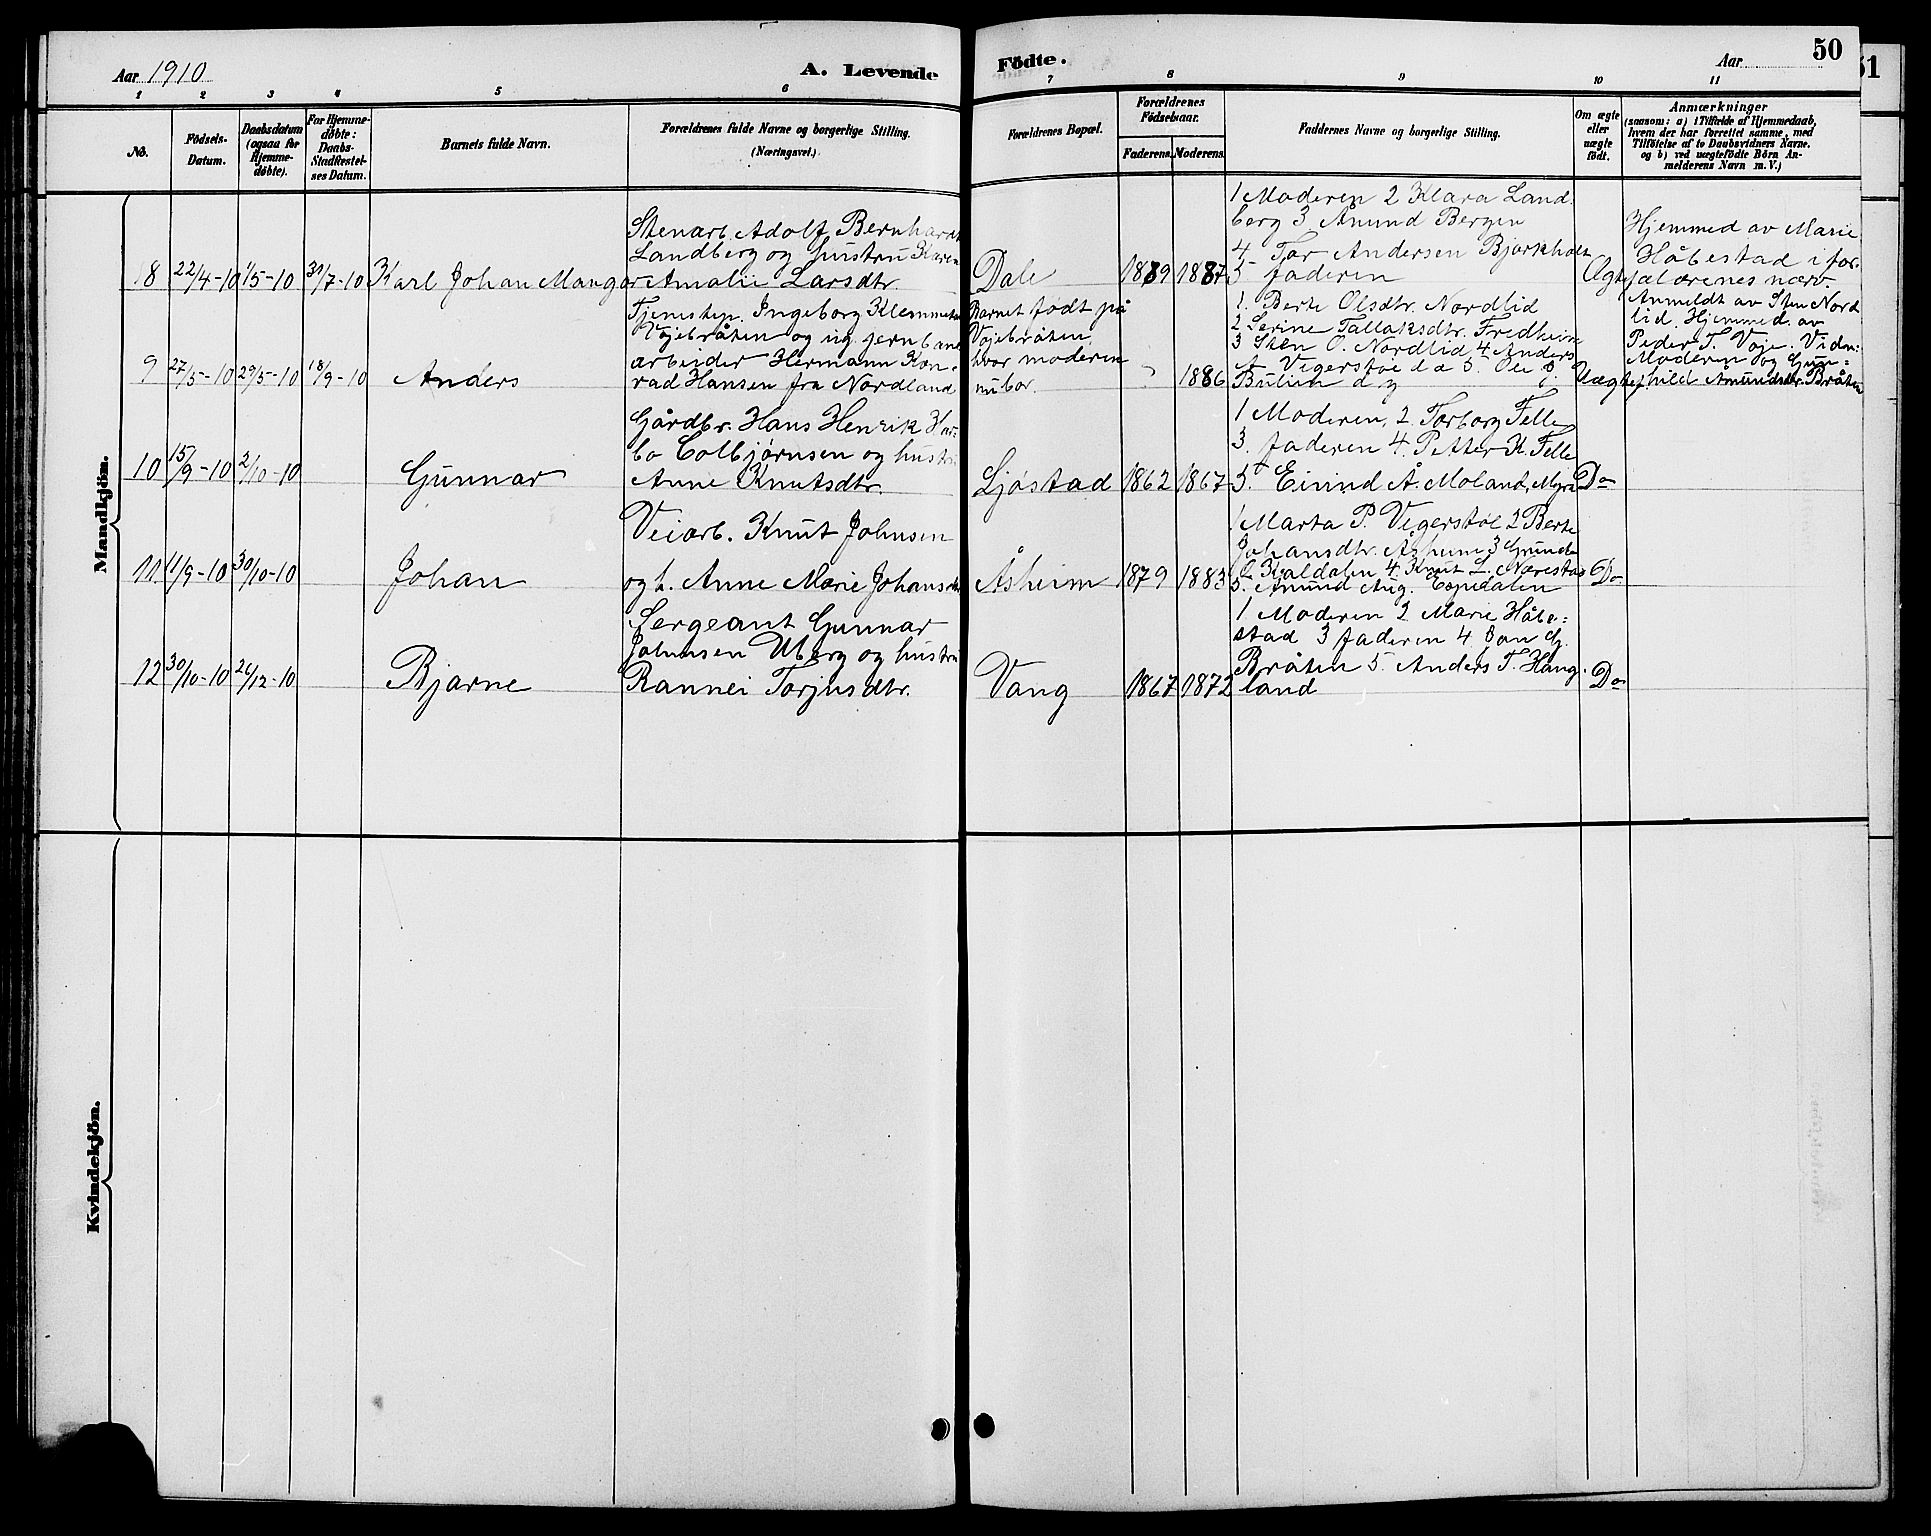 Aar 1910
A. Levende
Födte.
Aar
50
51
1 2 3 4 5 6 7 8 9 10 11
No.
Födsels-
Datum.
Daabsdatum
(ogsaa for
Hjemme-
døbte).
For Hjemme-
døbte:
Daabs-
Stadfæstel-
ses Datum.
Barnets fulde Navn.
Forældrenes fulde Navne og borgerlige Stilling.
(Næringsvei.)
Forældrenes Bopæl.
Forældrenes
Födselsaar.
Faderens.
Moderens.
Faddernes Navne og borgerlige Stilling.
Om ægte
eller
uægte
födt.
Anmærkninger
(saasom: a) i Tilfælde af Hjemmedaab,
hvem der har forrettet samme, med
Tilföielse af to Daabsvidners Navne.
og b) ved uægtefödte Börn An-
melderens Navn m. V.)
Mandkjön.
8
22/4-10
1/5-10
31/7-10
Karl Johan Mangor
Stenarb. Adolf Bernhardt
Landberg og hustru Karen
Amalie Larsdtr.
Dale
1889
1887
1 Moderen 2 Klara Land-
berg 3 Ånund Bergen
4 Tor Andersen Bjorkholt
5 faderen
Ægte
Hjemmed av Marie
Håbestad i for-
ældrenes nærv.
9
27/5-10
29/5-10
18/9-10
Anders
Tjenestep. Ingeborg Klemmets
Vojebråten og ug. jernbane
arbeider Hermann Kon-
rad Hansen fra Nordland
Barnet født på
Vojebråten,
hvor moderen
nu bor.
1886
1. Berte Olsdtr. Nordlid
2 Serine Tallaksdtr. Fredheim
3 Sten O. Nordlid 4 Anders
A Vegerstøl 5. Ole
Uægte
Anmeldt av Sten Nord
lid. Hjemmed. av
Peder T. Voje. Vidn:
Moderen og Gun-
hild Åmundsdtr. Bråten
10
15/9-10
2/10-10
Gunnar
Gårdbr. Hans Henrik Har-
bo Colbjørnsen og hustru
Anne Knutsdtr.
Ljøstad
1862
1867
1 Moderen, 2 Torborg Felle
3. faderen 4. Petter K Felle
5. Eivind Å. Moland, Myra
Do
11.
11/9-10
30/10-10
Johan
Veiarb. Knut Johnsen
og h. Anne Marie Johansdtr
Åsheim
1879
1883
1 Marta P. Vegerstøl 2 Berte
Johansdtr. Åsheim 3 Gunde
O Kaldalen 4 Knut L. Nærestad
5. Ånund Aug. Espedalen
Do
12
30/10-10
26/12-10
Bjarne
Sergeant Gunnar
Johnsen Uberg og hustru
Rannei Torjusdtr.
Vang
1867
1872
1 Moderen 2 Marie Håbe-
stad 3 faderen 4 Jon G.
Bråten 5. Anders T. Haug-
land
Do
Kvindekjön.